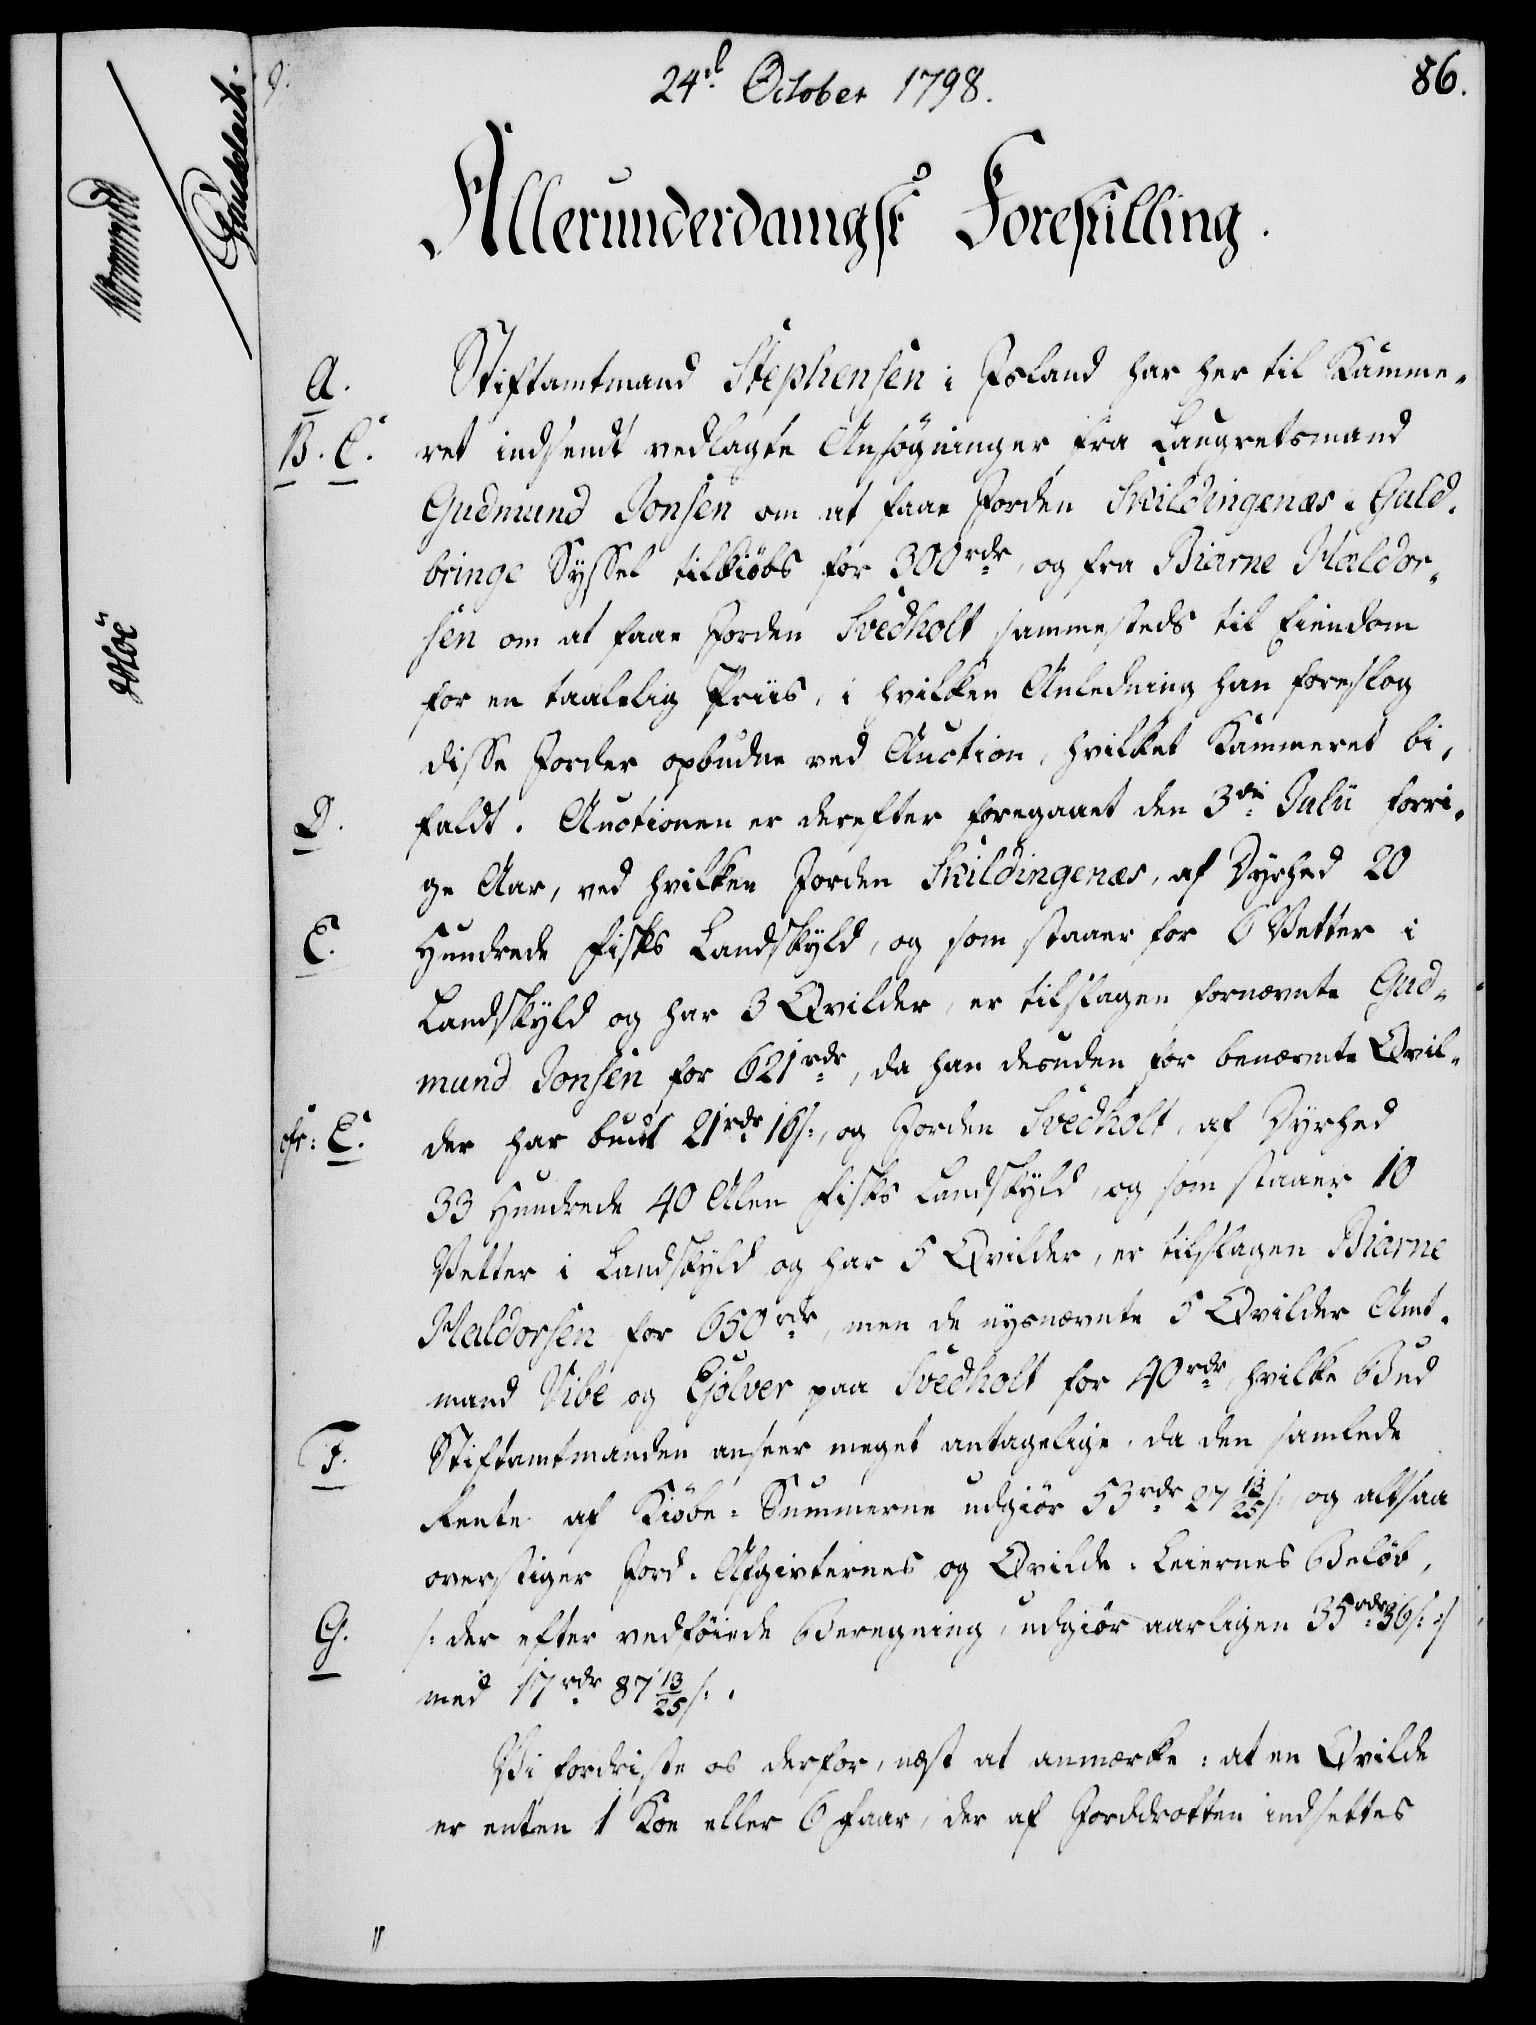 24d October 1798.
86.
Allerunderdanigst Forestilling.
A. Stiftamtmand Stephensen i Island har her til Kamme-
B. C. ret indsendt vedlagte Ansøgninger fra Laugretsmand
Gudmund Jonsen om at faae Jorden Skildingenæs i Guld-
bringe Syssel tilkiøbs for 300 rdr, og fra Biarne Haldor-
sen om at faae Jorden Svedholt sammesteds til Eiendom
for en taalelig Priis, i hvilken Anledning han foreslog
disse Jorder opbudne ved Auction, hvilket Kammeret bi-
D. faldt. Auctionen er derefter foregaaet den 3die Julii forri-
ge Aar, ved hvilken Jorden Skildingenæs, af Dyrhed 20
E. Hundrede Fisks Landskyld, og som staaer for 6 Vetter i
Landskyld og har 3 Qvilder, er tilslagen fornævnte Gud-
mund Jonsen for 621 rdr, da han desuden for benævnte Qvil-
cfr: E. der har budt 21 rdr 16 s:, og Jorden Svedholt, af Dyrhed
33 Hundrede 40 Alen Fisks Landskyld, og som staaer 10
Vetter i Landskyld og har 5 Qvilder, er tilslagen Biarne
Haldorsen for 650 rdr, men de nysnævnte 5 Qvilder Amt-
mand Vibe og Ejolver paa Svedholt for 40 rdr, hvilke Bud
F. Stiftamtmanden anseer meget antagelige, da den samlede
Rente af Kiøbe-Summerne udgiør 53 rdr 27 13/25 s:, og altsaa
overstiger Jord-Afgivternes og Qvilde-Leiernes Beløb,
G. /: der efter vedføiede Beregning, udgiør aarligen 35 rdr 36 s: :/
med 17 rdr 87 13/25 s:.
Vi fordriste os derfor, næst at anmærke: at en Qvilde
er enten 1 Koe eller 6 Faar, der af Jorddrotten indsettes